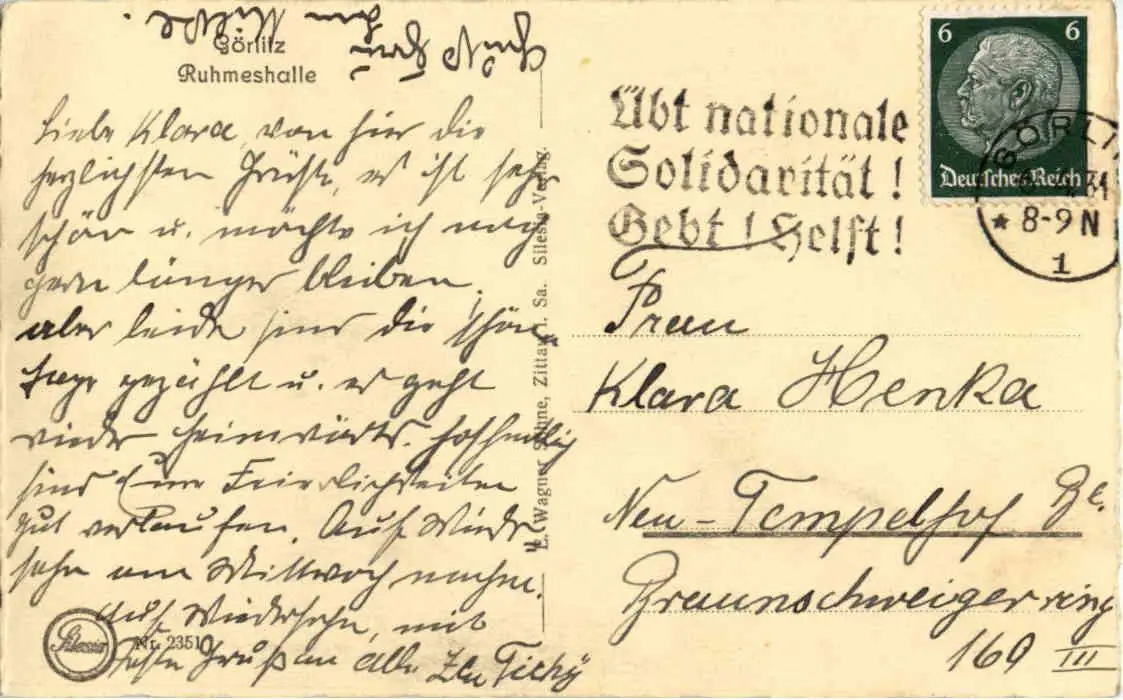 Görlitz
Ruhmeshalle
Liebe Klara, von hier die
herzlichsten Grüße, es ist sehr
schön u. möchte ich noch
gern länger bleiben,
aber leider sind die schön.
Tage gezählt u. es geht
wieder heimwärts. Hoffentlich
sind Eure Feierlichkeiten
gut verlaufen. Auf Wieder
sehn am Mittwoch nachm.
Auf Wiedersehn, mit
Gruß an alle
Silesia
Nr. 23510
E. Wagner Söhne, Zittau i. Sa. Silesia-Verlag.
Übt nationale
Solidarität!
Gebt! Helft!
6 6
Deutsches Reich
GÖRLITZ
* 8-9 N
1
Frau
Klara Henka
Neu-Tempelhof
Braunschweiger ring
160 III